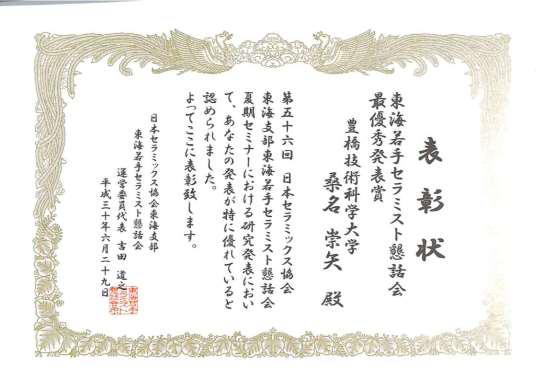 表彰状
東海若手セラミスト懇話会
最優秀発表賞
豊橋技術科学大学
桑名 崇矢 殿
第五十六回 日本セラミックス協会
東海支部東海若手セラミスト懇話会
夏期セミナーにおける研究発表におい
て、あなたの発表が特に優れていると
認められました。
よってここに表彰致します。
日本セラミックス協会東海支部
東海若手セラミスト懇話会
運営委員代表 吉田 道之
平成三十年六月二十九日